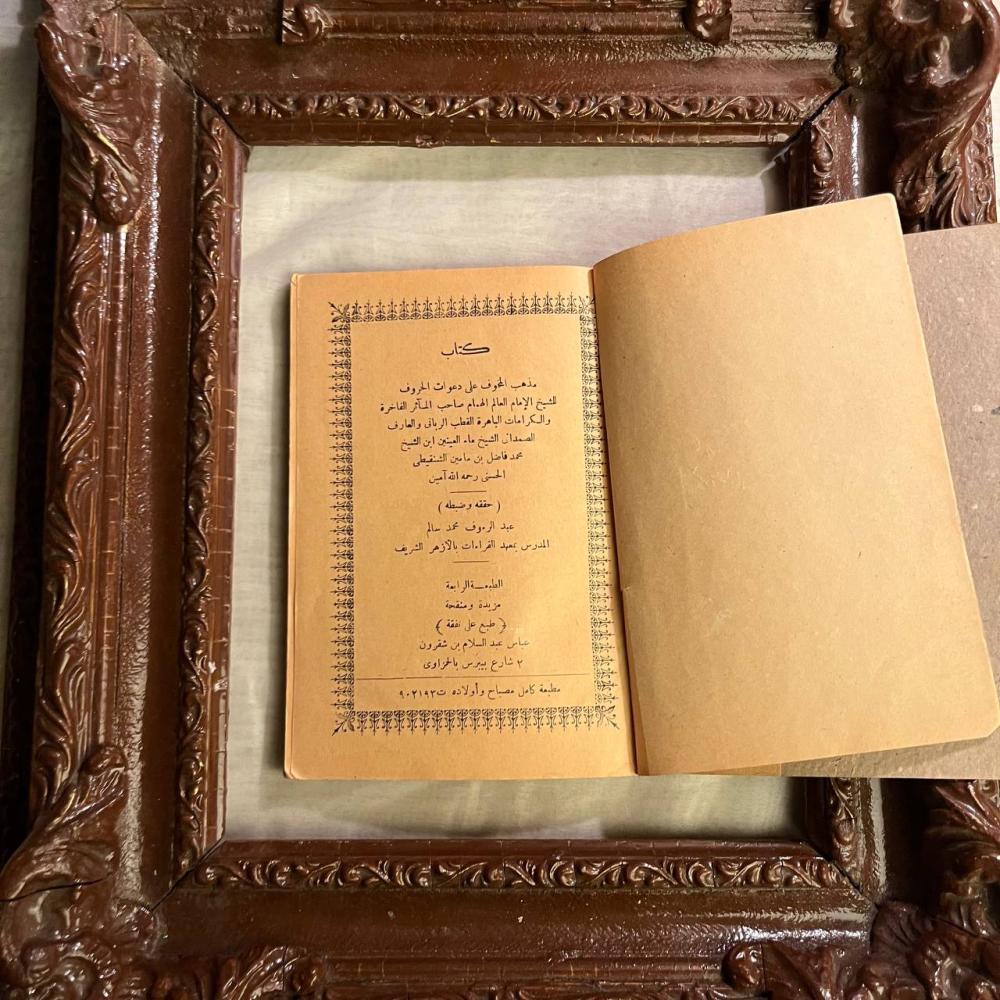 كتاب
مذهب المخوف على دعوات الحروف
للشيخ الإمام العالم الهمام صاحب المآثر الفاخرة
والكرامات الباهرة القطب الربانى والعارف
الصمدانى الشيخ ماء العينين ابن الشيخ
محمد فاضل بن مامين الشنقيطى
الحسنى رحمه الله آمين
( حققه وضبطه )
عبد الرءوف محمد سالم
المدرس بمعهد القراءات بالأزهر الشريف
الطبعــة الرابعة
مزيدة ومنقحة
﴿ طبع على نفقة ﴾
عباس عبد السلام بن شقرون
٣ شارع بيبرس بالحمزاوى
مطبعة كامل مصباح وأولاده ت ٩٠٢١٩٣